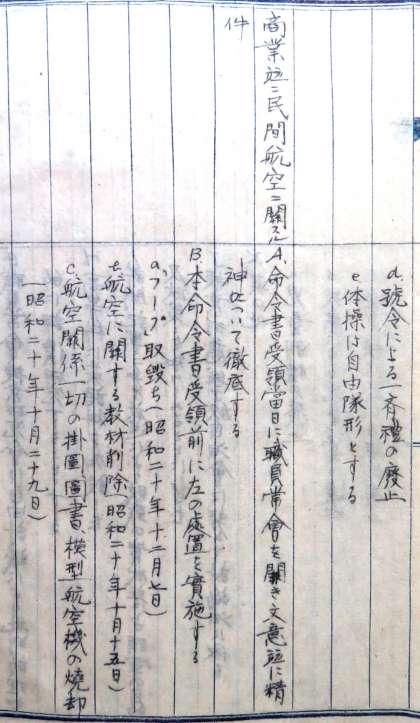 d.號令による一斉禮の廃止
e.体操は自由隊形とする
商業竝ニ民間航空ニ關スル
件
A.命令書受領當日に職員常會を開き文意竝に精
神について徹底する
B.本命令書受領前に左の處置を実施する
a.フープ取毀ち(昭和二十年十二月七日)
b.航空に關する教材削除(昭和二十年十月十五日)
c.航空關係一切の掛圖圖書模型航空機の燒却
(昭和二十年十月二十九日)